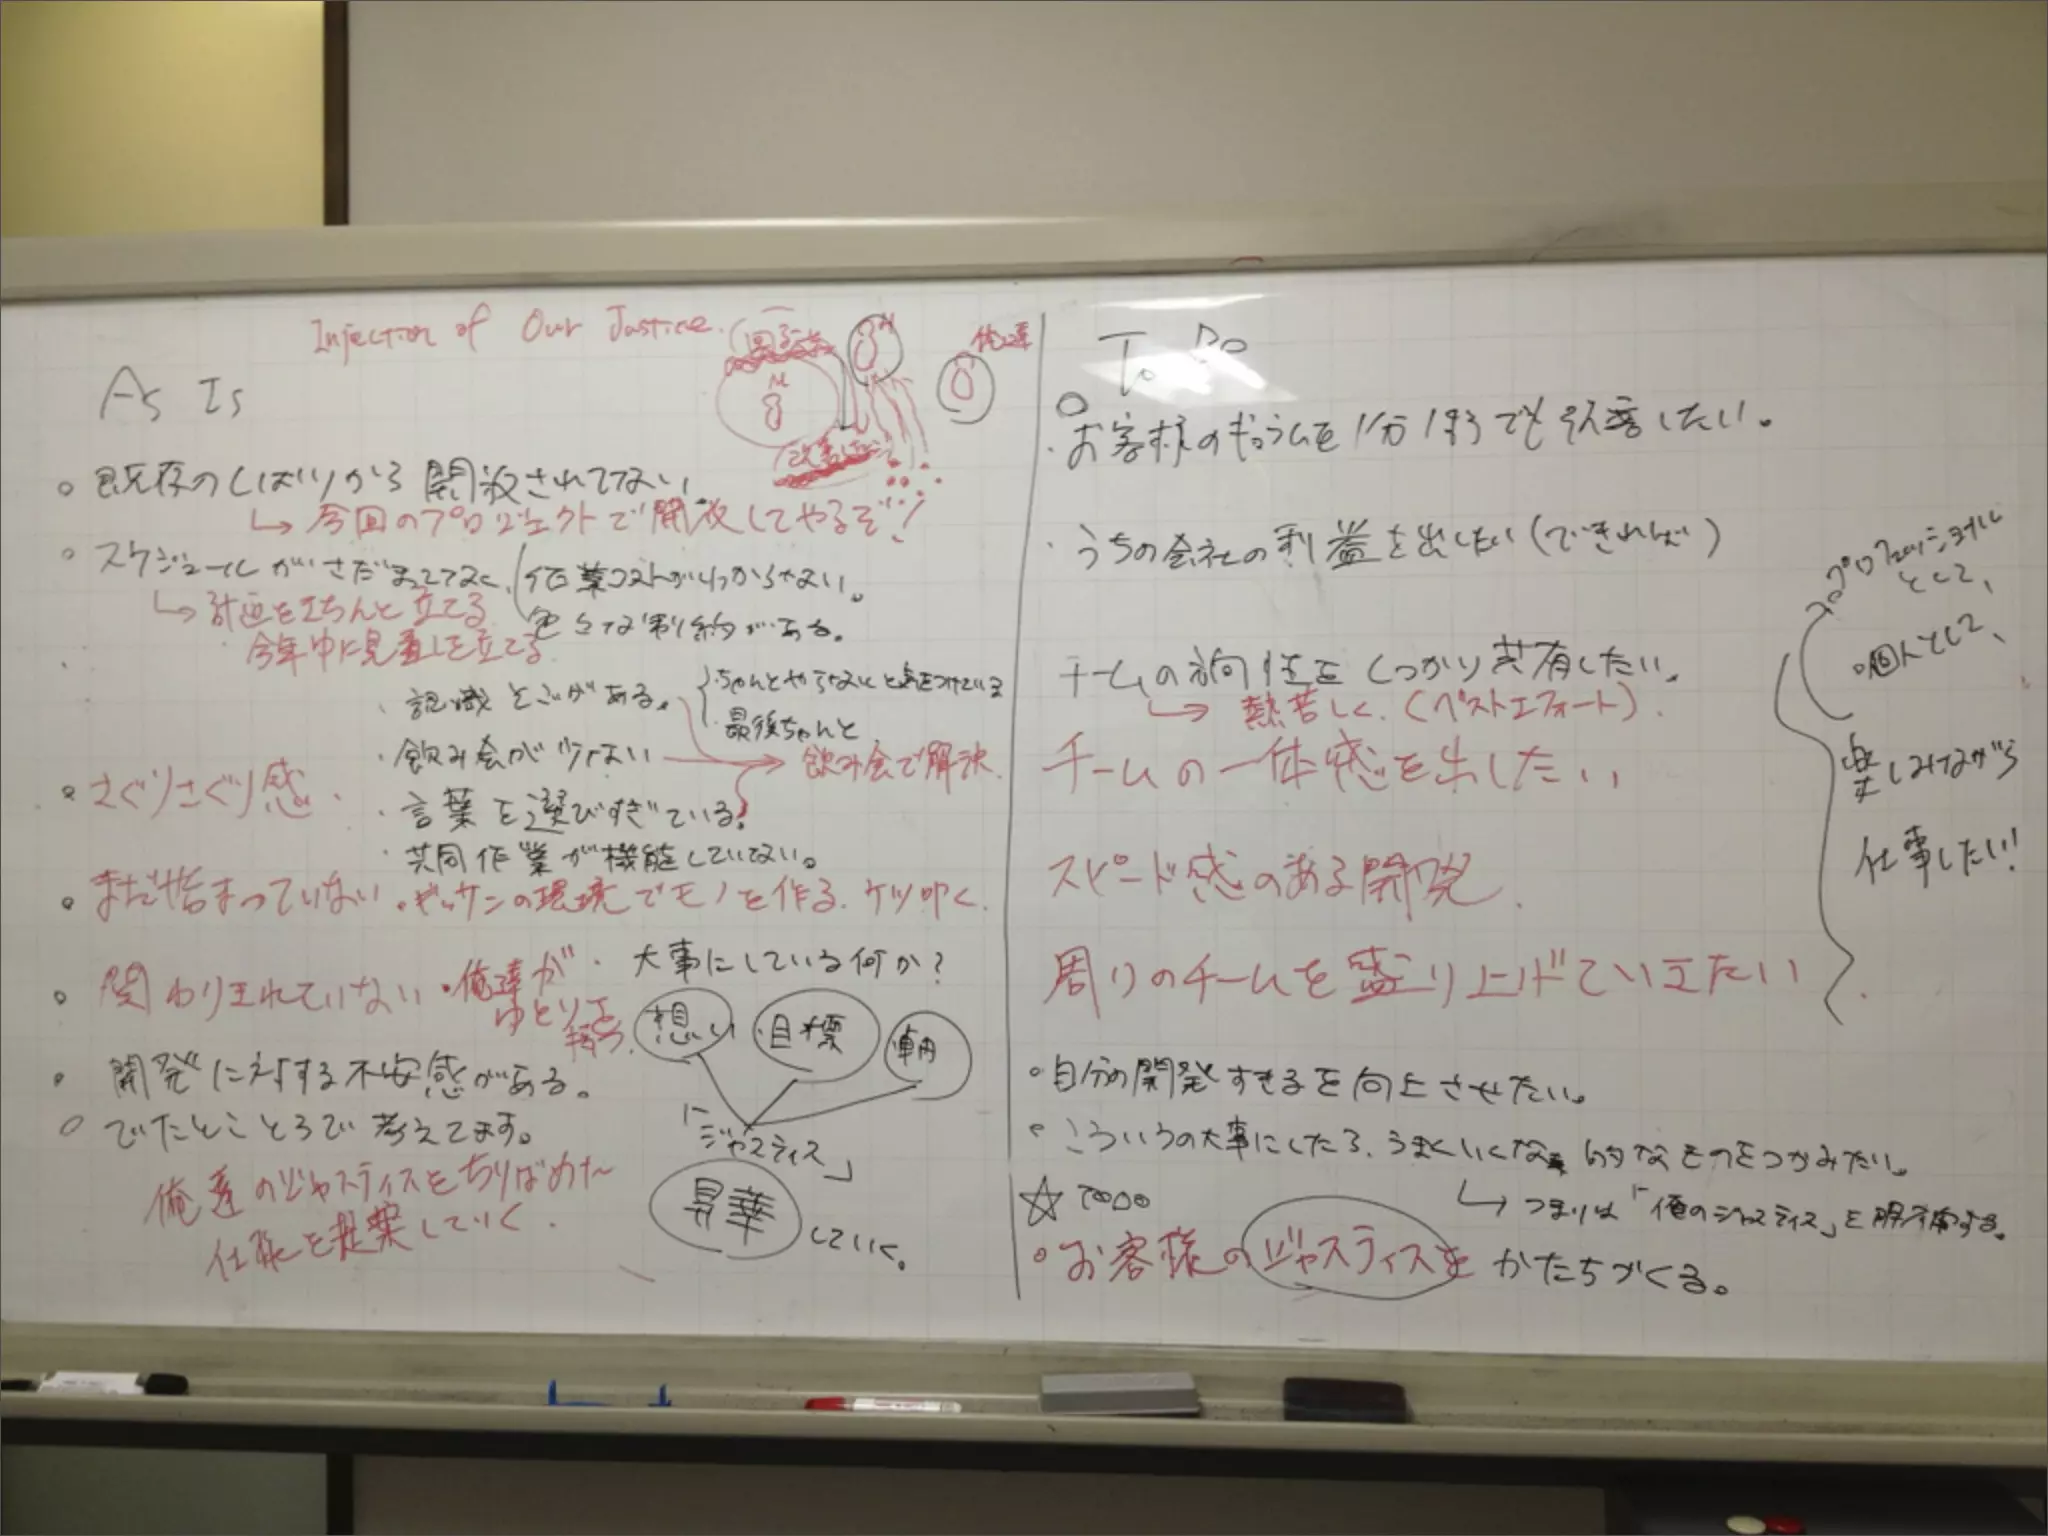 Injection of Our Justice.
俺達
As Is
既存のしばりから開放されてない。
↳ 今回のプロジェクトで開放してやるぞ!!
スケジュールがさだまってなく、
作業コストがわからない。
色々な制約がある。
↳ 計画をきちんと立てる
今年中に見直しを立てる
・認識とごがある。
・ちゃんとやらないと気をつけている
・最後ちゃんと
・飲み会が少ない → 飲み会で解決
・さぐりさぐり感
・言葉を選びすぎている。
・共同作業が機能していない。
・まだ始まっていない ・ギッサンの環境でモノを作る ケツ叩く
関わりきれていない ・俺達が
ゆとりを
持つ。
・大事にしている何か?
想い 目標 軸
「ジャスティス」
昇華 していく。
・開発に対する不安感がある。
でたとこところで考えてます。
俺達のジャスティスをちりばめた
仕様を提案していく。
To Be
・お客様の を1分1秒でも 善したい。
・うちの会社の利益を出したい(できれば)
チームの方向性をしっかり共有したい。
↳ 熱苦しく。(ベストエフォート)
チームの一体感を出したい
スピード感のある開発
周りのチームを盛り上げていきたい
プロフェッショナル
として、
・個人として、
楽しみながら
仕事したい!
・自分の開発すきるを向上させたい。
・こういうの大事にしたら、うまくいくな 的なものをつかみたい。
↳ つまりは「俺のジャスティス」を する。
☆ TODO
・お客様のジャスティスを かたちづくる。